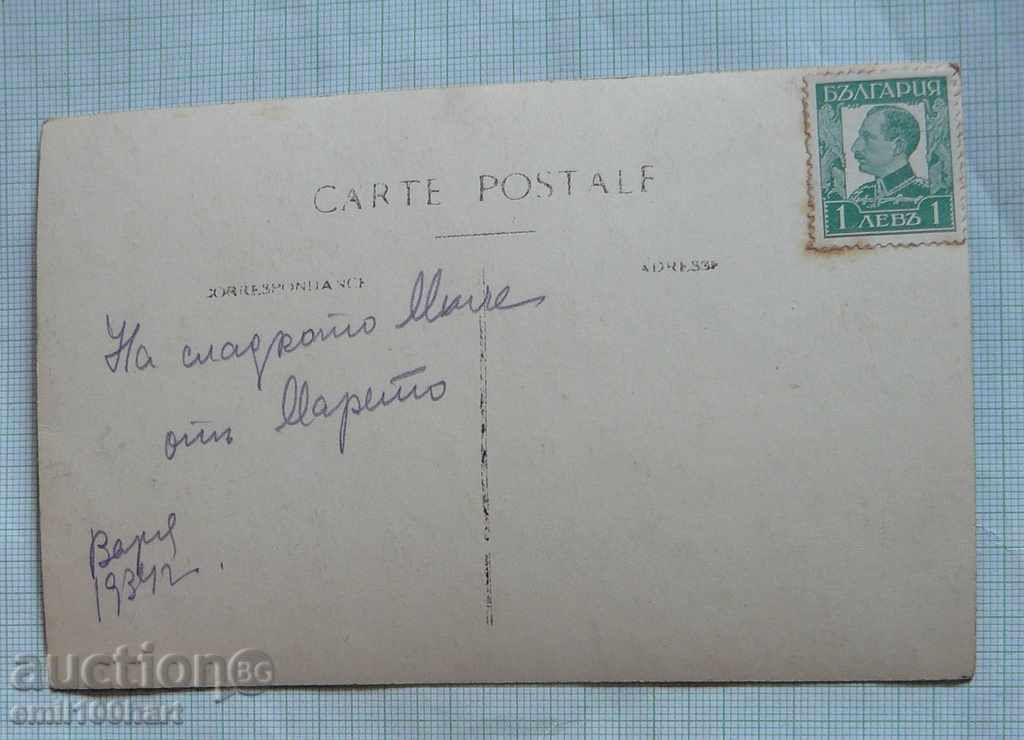 БЪЛГАРИЯ
1 ЛЕВЪ 1
CARTE POSTALE
CORRESPONDANCE
ADRESSE
На сладкото
отъ Марето
1934 г.
auction BG
emil100hart